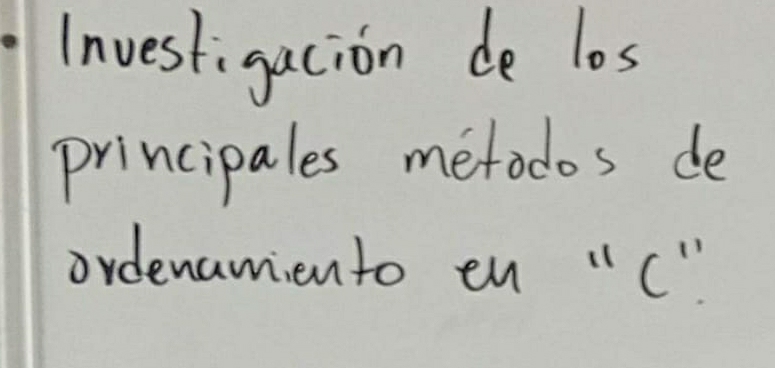 • Investigación de los
principales métodos de
ordenamiento en "C".